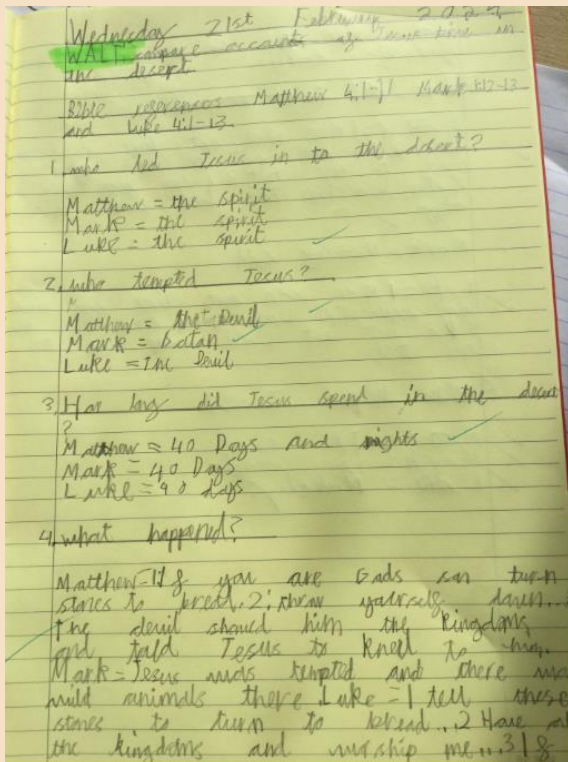 Wednesday 21st February 2024
WALT compare accounts of Jesus time in
the desert
Bible references Matthew 4:1-11 Mark 1:12-13
and Luke 4:1-13
1. who led Jesus in to the desert?
Matthew = the spirit
Mark = the spirit
Luke = the spirit
2. who tempted Jesus?
Matthew = the Devil
Mark = Satan
Luke = The Devil
3. How long did Jesus spend in the desert
?
Matthew = 40 Days and nights
Mark = 40 Days
Luke = 40 days
4. what happened?
Matthew = 1 If you are Gods son turn
stones to bread. 2: throw yourself down...
The devil showed him the kingdoms
and told Jesus to kneel to him.
Mark = Jesus was tempted and there
wild animals there. Luke = 1 tell these
stones to turn to bread... 2 Have all
the kingdoms and worship me... 3 If